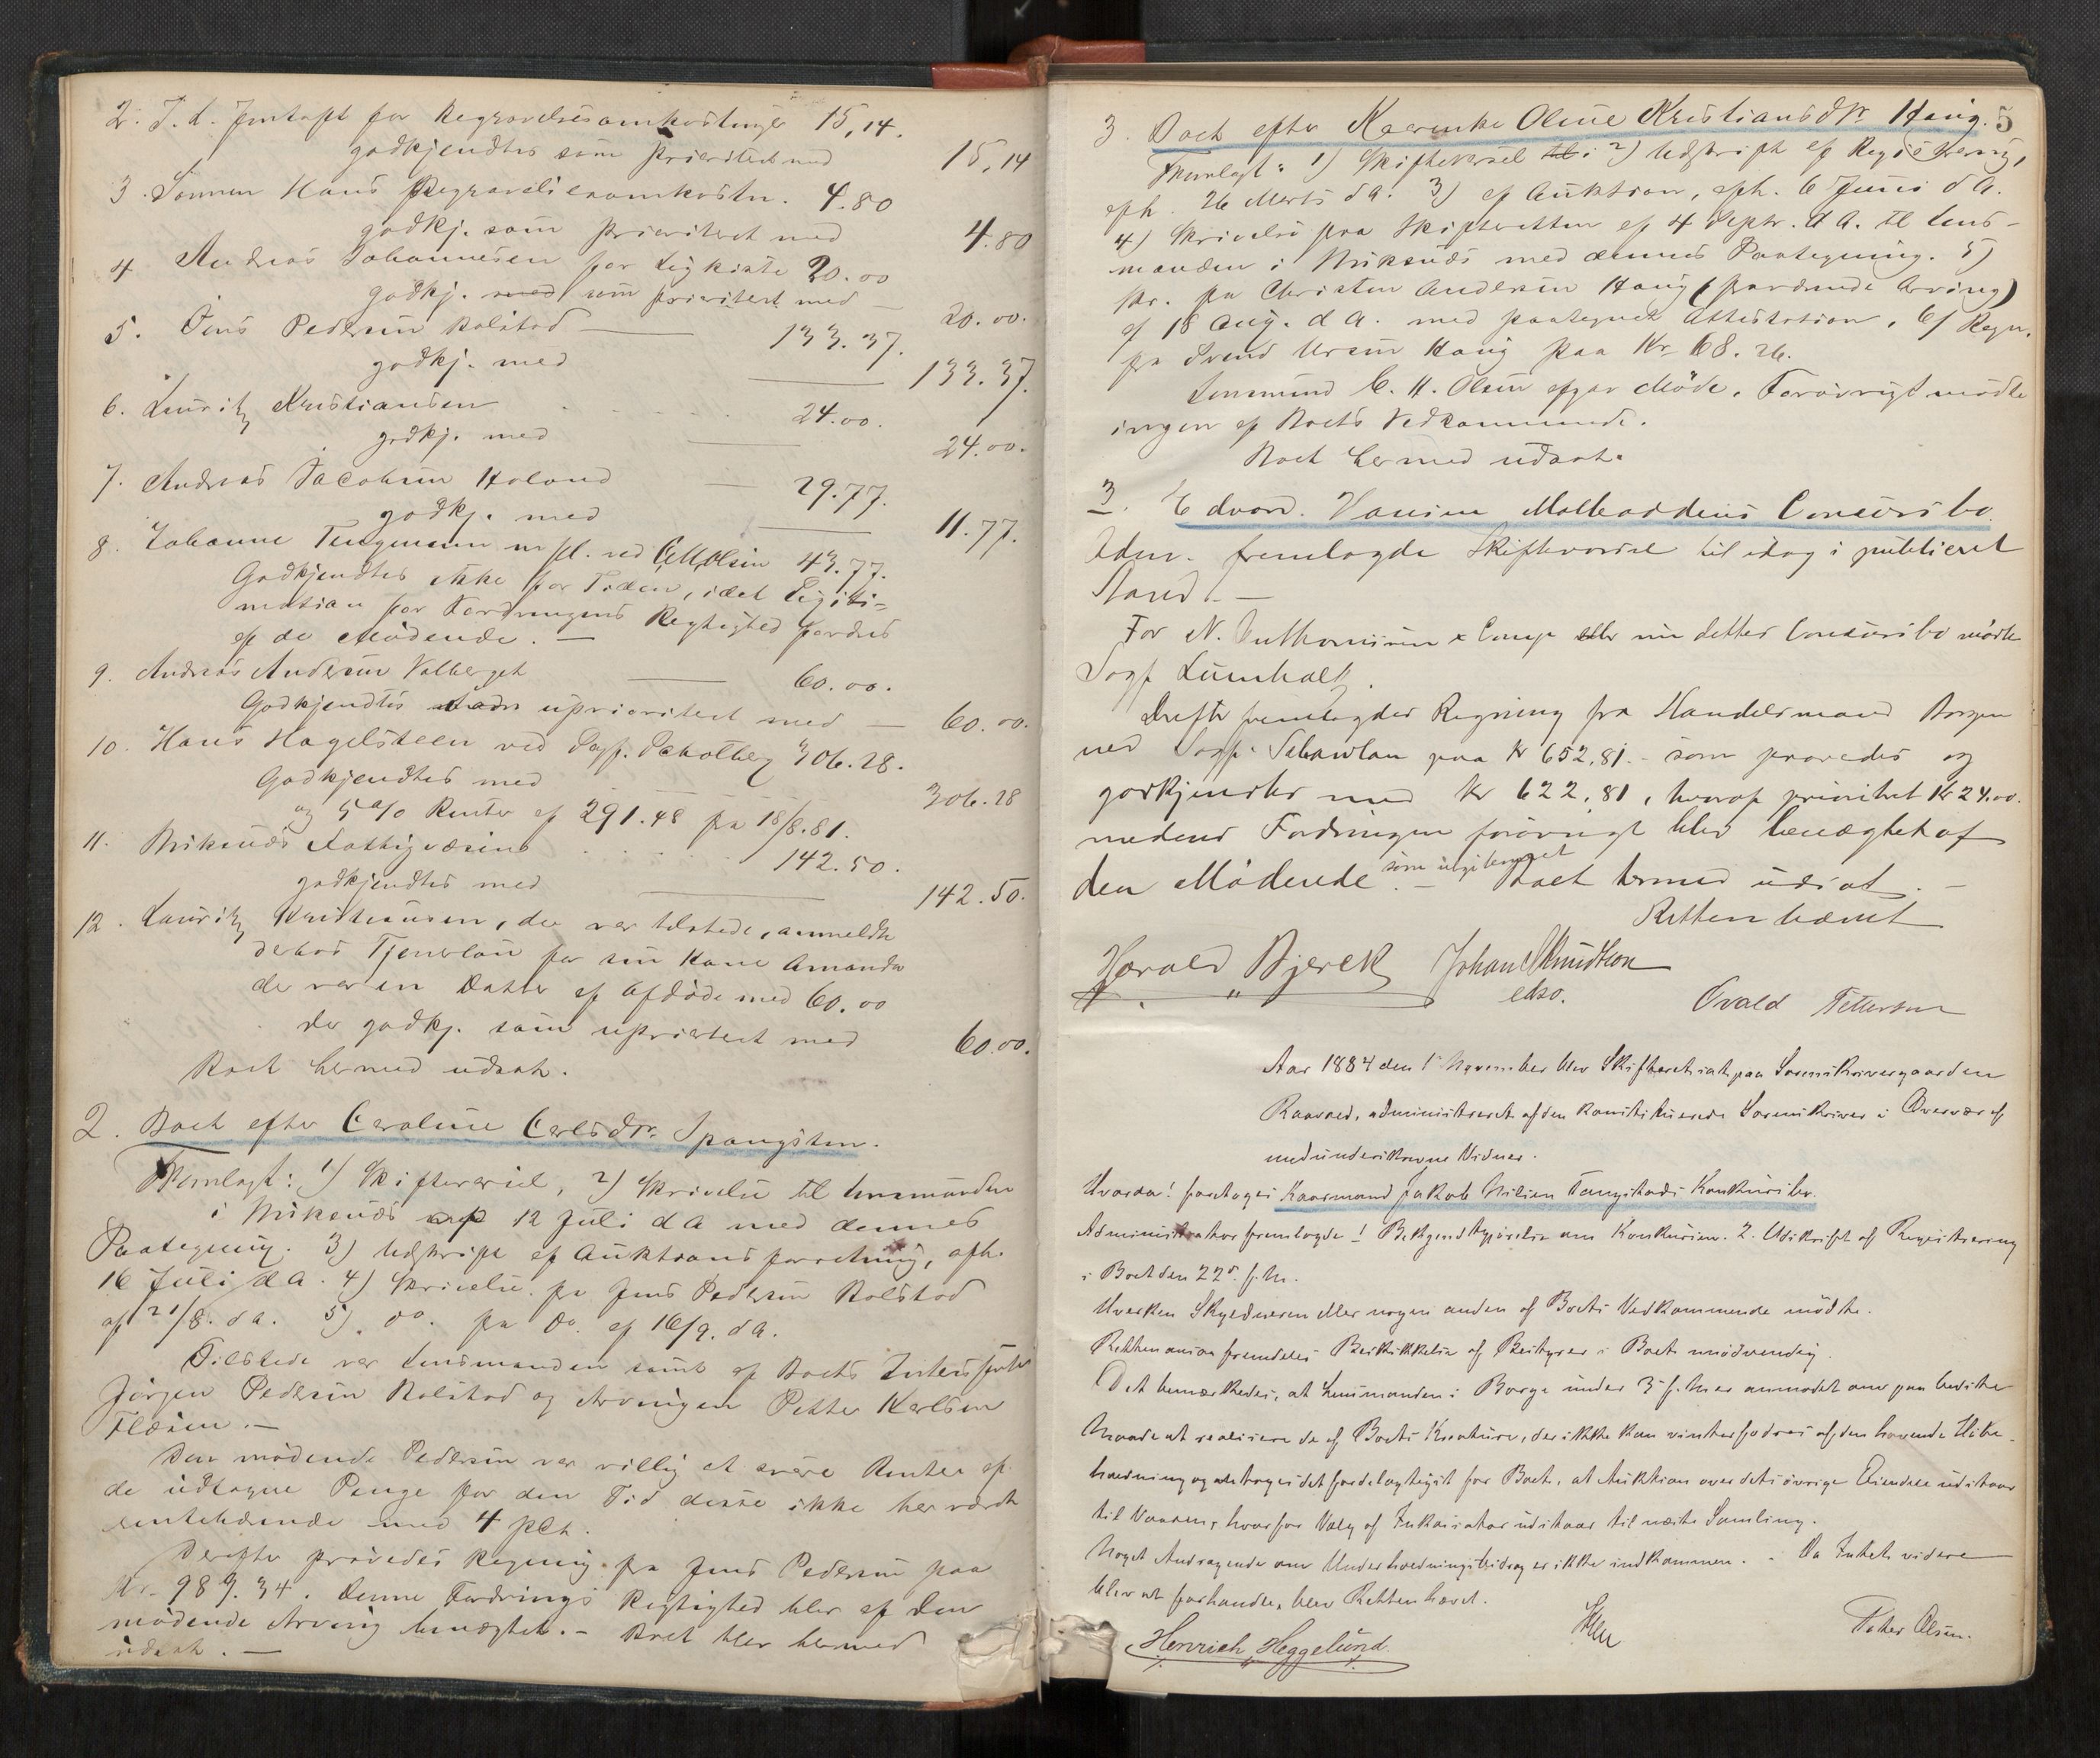 2. I. d. for Begravelsesomkostninger 15,14.
godkjendtes som prioritert med 15,14
3. Sønnen Hans Begravelsesomkostn. 4.80
godkj. som prioritert med 4.80
4 Andreas Johannesen for Ligkiste 20.00
godkj. som prioritert med — 20.00.
5. Jens Pedersen Bolstad — 133.37.
godkj. med 133.37.
6. Lauritz Kristiansen 24.00.
godkj. med 24.00.
7. Andreas Jacobsen Holand — 29.77.
godkj. med 11.77.
8. Johanne ved C. M. Olsen 43.77.
Godkjendtes ikke for Tiden, idet Legiti=
mation for Fordringens Rigtighed fordres
af de Mødende. —
9. Andreas Andersen Valberget — 60.00.
Godkjendtes uprioritert med — 60.00.
10. Hans Hagelsteen ved Sagf. 306.28.
Godkjendtes med 306.28
og 5 % Renter af 291.48 fra 18/8.81.
11. Buksnæs Fattigvæsen 142.50.
godkjendtes med 142.50.
12. Lauritz Kristiansen, der var tilstede, anmeldte
derhos Tjenerløn for sin Kone Amanda
der var en Datter af Afdøde med 60.00
der godkj. som uprioritert med 60.00.
Boet hermed udsat.
2. Boet efter Caroline Carlsdtr. Spangsten.
Fremlagt: 1) Skiftevarsel, 2) Skrivelse til Lensmanden
i Buksnæs af 12 Juli d A med dennes
Paategning. 3) Udskrift af Auktionsforretning, afh.
16 Juli d A. 4) Skrivelse fra Jens Pedersen Bolstad
af 21/8. d A. 5) do. fra Do. af 16/9. d A.
Tilstede var Lensmanden samt af Boets Interessenter
Jørgen Pedersen Bolstad og Arvingen Petter Karlsen
Flæsen. —
Den mødende Pedersen var villig at svare Renter af
de udtagne Penge for den Tid disse ikke har været
rentebærende med 4 pCt.
Derefter prøvedes Regning fra Jens Pedersen paa
Kr. 989.34. Denne Fordrings Rigtighed blev af den
mødende Arving benægtet. — Boet blev hermed
udsat. —
5
3. Boet efter Oline Kristiansdtr. Haug.
Fremlagt: 1) Skiftevarsel 2) Udskrift af Registrering,
afh. 26 Marts d A. 3) af Auktion, afh. 6 Juni d A.
4) Skrivelse fra Skifteretten af 4 Septbr. d A. til Lens-
manden i Buksnæs med dennes Paategning. 5)
Skr. fra Christen Andersen Haug
af 18 Aug. d A. med paategnet Attestation, 6) Regn.
fra Svend Haug paa Kr. 68.26.
Lensmand C. M. Olsen afgav Møde. Forøvrigt mødte
ingen af Boets Vedkommende.
Boet hermed udsat.
3. Edvard Hansen Concursbo
Adm. fremlagde Skiftevarsel til idag i publiceret
Stand. —
For N. & Comp nu dettes Concursbo mødte
Sagf Lumholtz.
Derefter fremlagdes Regning fra Handelsmand
ved Sagf. paa Kr 652,81. som prøvedes og
godkjendtes med Kr 622,81, hvoraf prioritet Kr 24.00.
medens Fordringen forøvrigt blev benægtet af
den Mødende. — Boet hermed udsat. —
Retten hævet
Harald Bjerck Johan Knudtson Ovald Pettersen
Aar 1884 den 1 November blev Skifteret sat paa Sorenskrivergaarden
administreret af den konstituerede Sorenskriver i Overvær af
medunderskrevne Vidner.
Hvorda! foretoges Jakob Nilsen Tangstads Konkursbo.
Administrator fremlagde 1 Bekjendtgjørelse om Konkursen. 2. Udskrift af Registrering
i Boet den 22de f. M.
Hverken Skyldneren eller nogen anden af Boets Vedkommende mødte.
Retten ansaa fremdeles Beskikkelse af Bestyrer i Boet unødvendig.
Det bemærkedes, at Lensmanden i Borge under 3 f. M. er anmodet om paa bedste
Maade at realisere de af Boets Kreature, der ikke kan vinterfodres af den havende
og antages det fordelagtigst for Boet, at Auktion over dets øvrige Eiendele udstaar
til Vaaren, hvorfor Valg af Inkassator udstaar til næste Samling.
Noget Andragende om Underholdningsbidrag er ikke indkommen. - Da Intet videre
blev at forhandle, blev Retten hævet.
Henrich Heggelund. Peter Olsen.